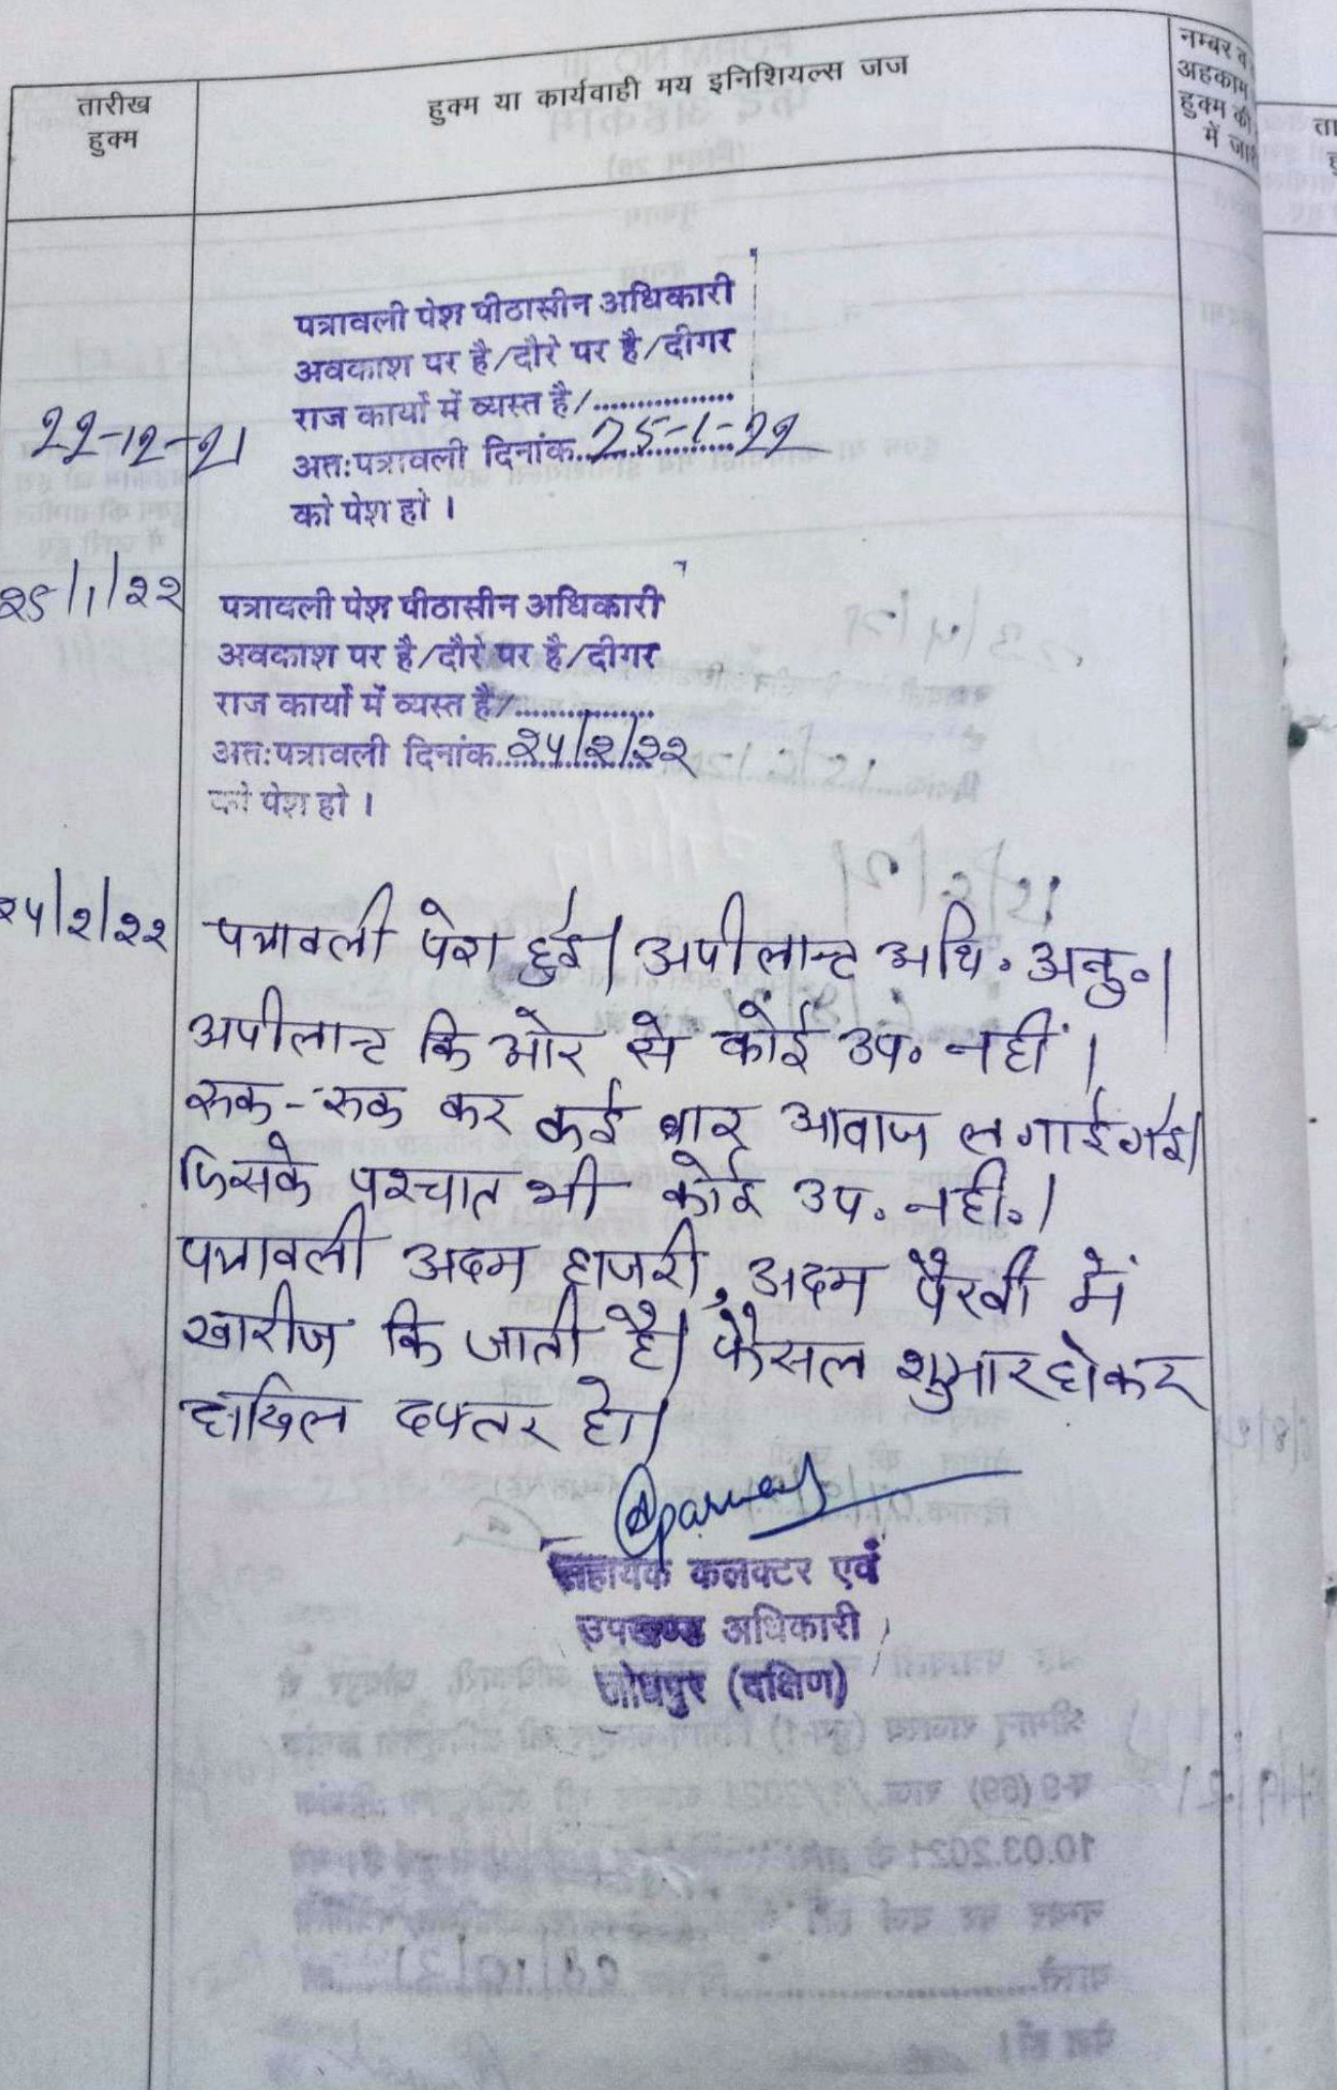 तारीख
हुक्म
हुक्म या कार्यवाही मय इनिशियल्स जज
नम्बर व
अहकाम
हुक्म की
में जा
पत्रावली पेश पीठासीन अधिकारी
अवकाश पर है/दौरे पर है/दीगर
राज कार्यो में व्यस्त है/.................
22-12-21
अतः पत्रावली दिनांक..25-1-22
को पेश हो ।
25/1/22
पत्रावली पेश पीठासीन अधिकारी
अवकाश पर है/दौरे पर है/दीगर
राज कार्यो में व्यस्त है/.................
अतः पत्रावली दिनांक..२५/२/२२
को पेश हो ।
२५/२/२२
पत्रावली पेश हुई। अपीलान्ट अधि. अनु.।
अपीलान्ट कि ओर से कोई उप. नहीं ।
रूक-रूक कर कई बार आवाज लगाई गई।
जिसके पश्चात भी कोई उप. नही.।
पत्रावली अदम हाजरी, अदम पैरवी में
खारीज कि जाती है। फैसल शुमार होकर
दाखिल दफ्तर हो।
सहायक कलक्टर एवं
उपखण्ड अधिकारी
जोधपुर (दक्षिण)